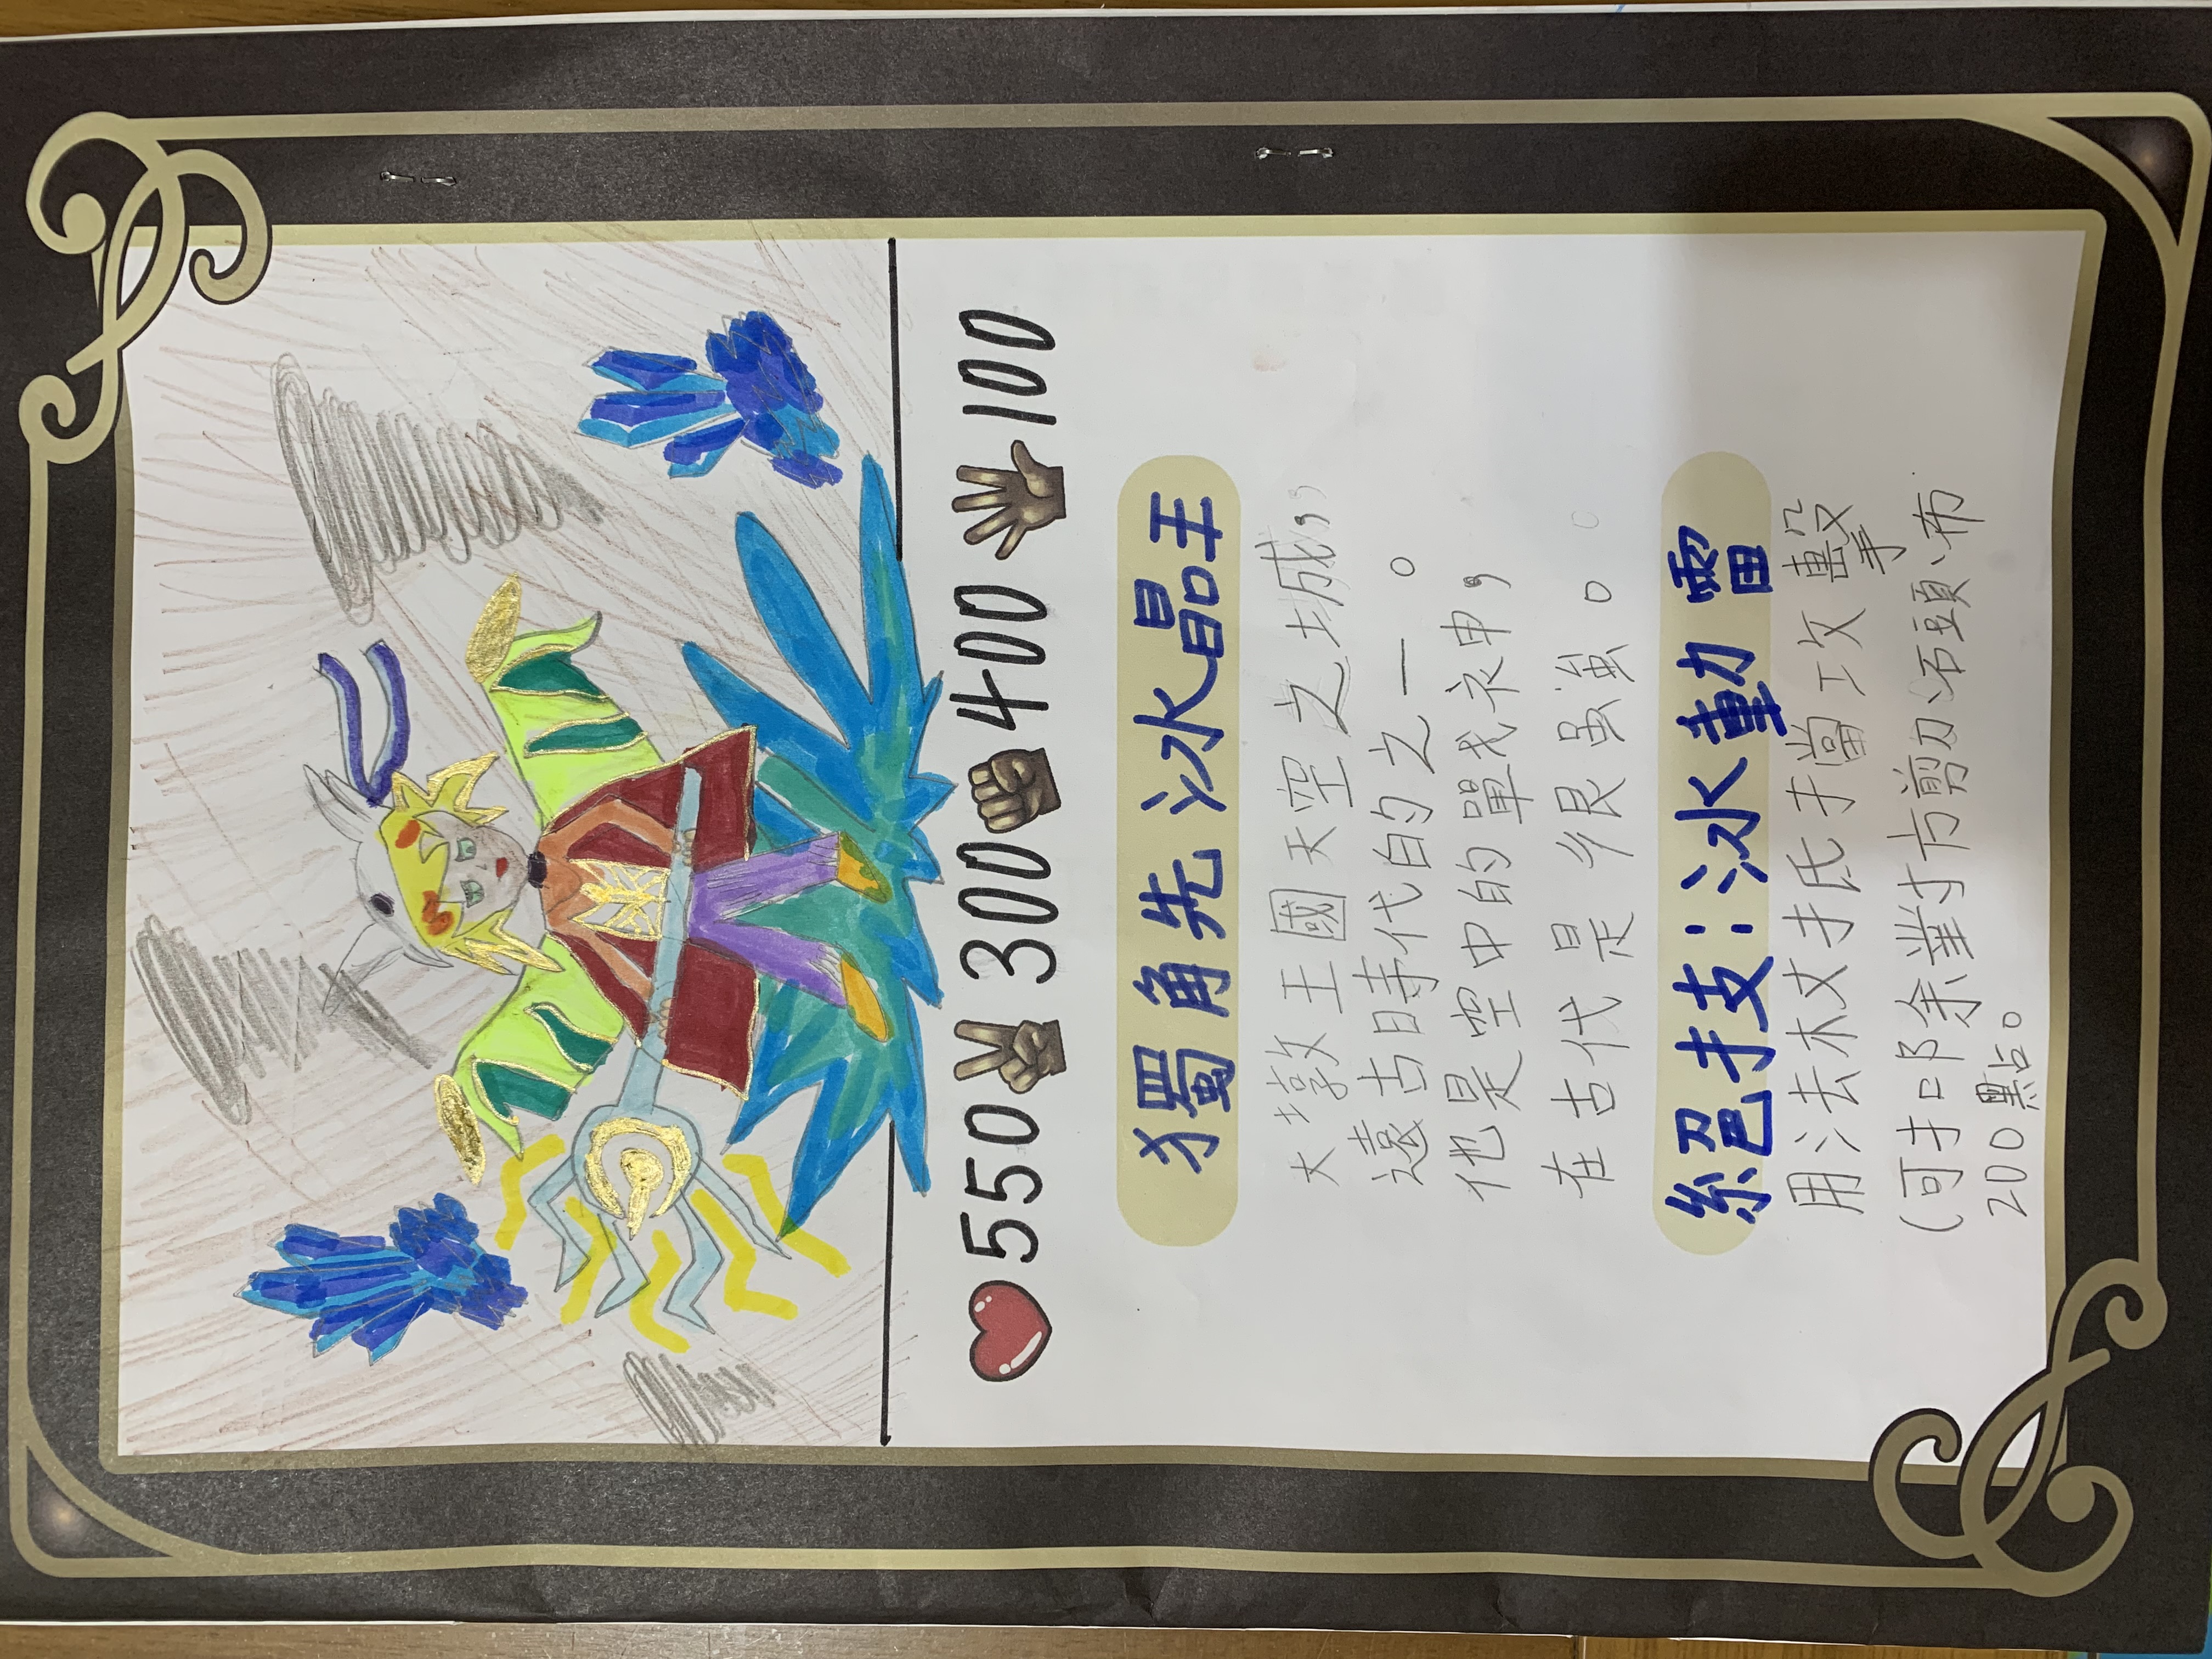 550 300 400 100
獨角先冰晶王
大墩王國天空之城,
遠古時代的之一。
他是空中的戰神,
在古代是很強。
絕技:冰動雷
用法杖抵擋攻擊
(可扣除對方剪刀、石頭、布
200點。